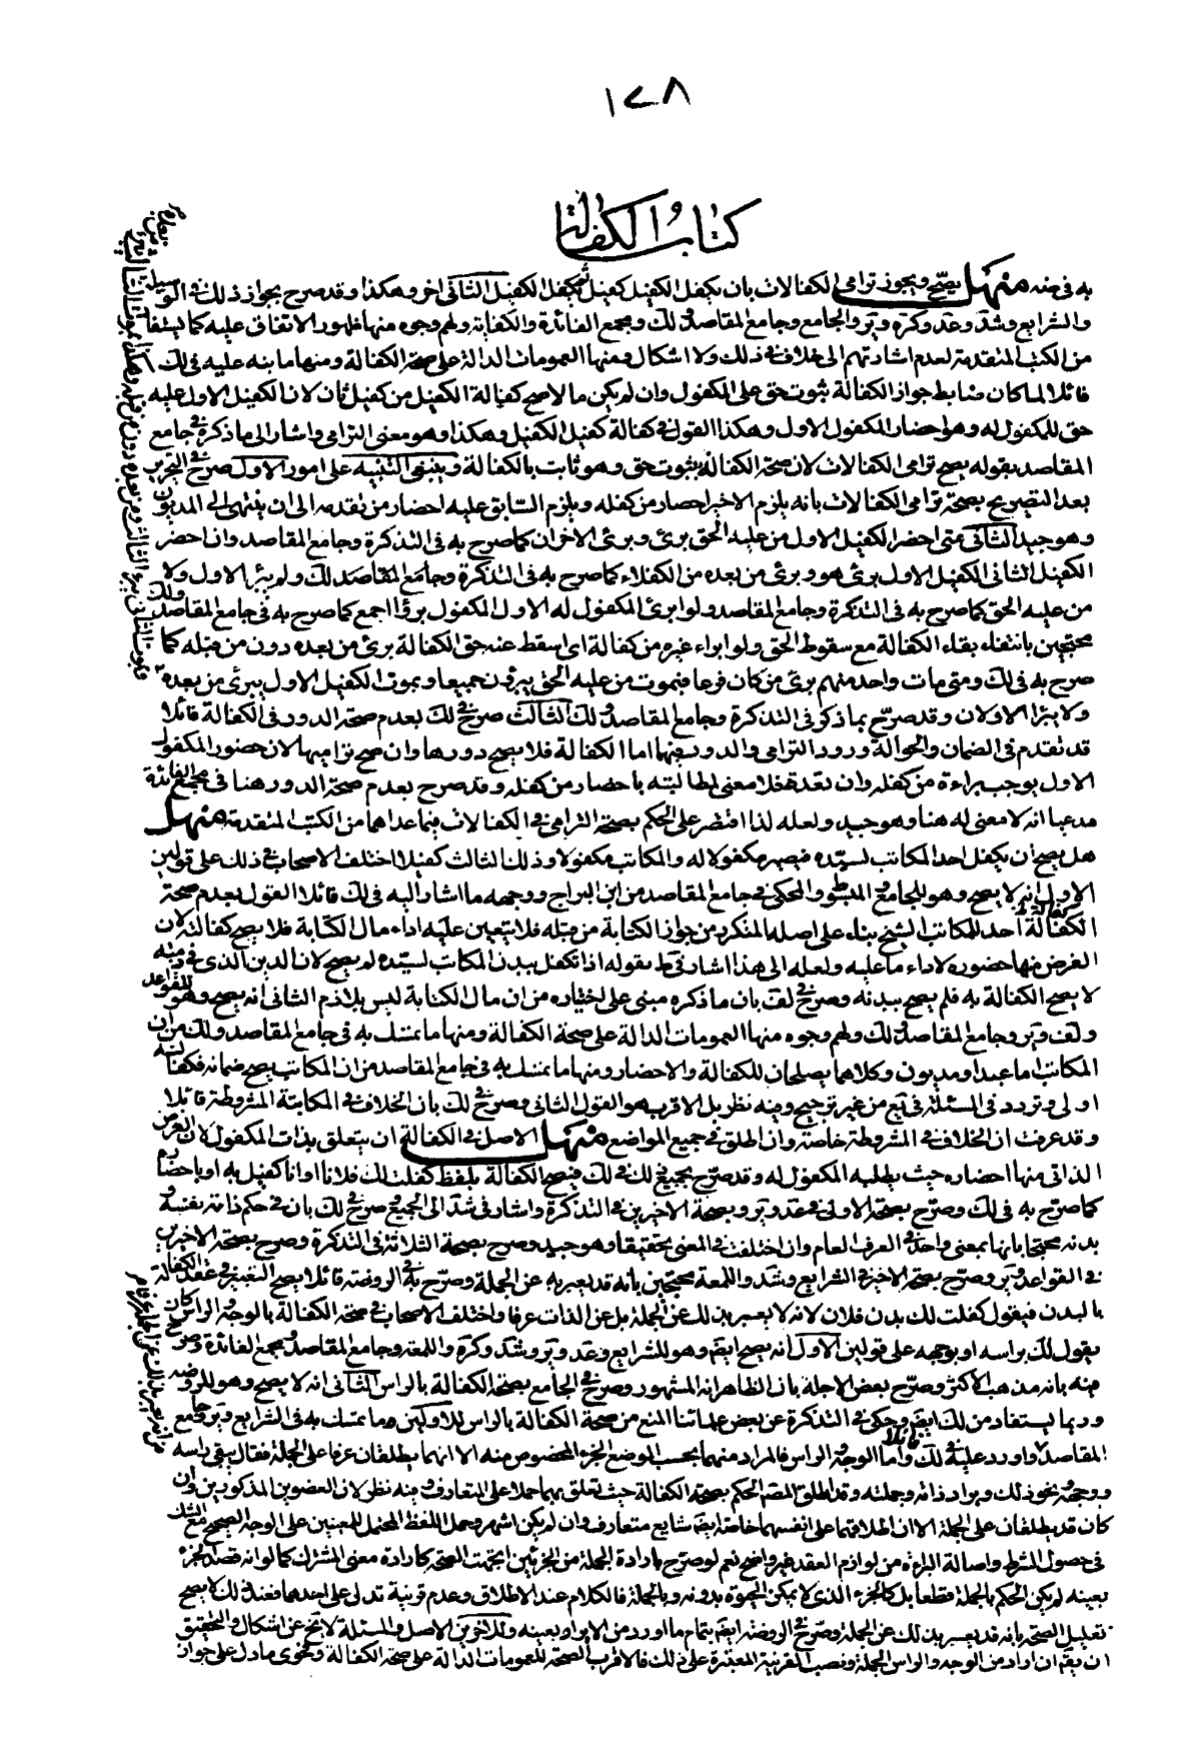 ١٢٨
كتاب الكفالة
به في منه منهل يصحّ ويجوز ترامى الكفالات بان يكفل الكفيل كفيل ثم يكفل الكفيل الثانى اخر وهكذا وقد صرح بجواز ذلك في الوسيلة
والشرايع وشد وعد وكرة وير والجامع وجامع المقاصد ولك ومجمع الفائدة والكفاية ولهم وجوه منها ظهور الاتفاق عليه كما يستفاد
من الكتب المتقدمة لعدم اشارتهم الى خلاف في ذلك ولا اشكال ومنها العمومات الدالة على صحة الكفالة ومنها ما نبه عليه في لك
قائلا لما كان ضابط جواز الكفالة ثبوت حق على المكفول وان لم يكن مالا صح كفالة الكفيل من كفيل ثان لان الكفيل الاول عليه
حق للمكفول له وهو احضار المكفول الاول وهكذا القول في كفالة كفيل الكفيل وهكذا وهو معنى الترامي واشار الى ما ذكره في جامع
المقاصد بقوله يصح ترامى الكفالات لان صحة الكفالة بثبوت حق وهو ثابت بالكفالة وينبغى التنبيه على امور الاول صرح في التحرير
بعد التصريح بصحة ترامى الكفالات بانه يلزم الاخير احضار من كفله ويلزم السابق عليه احضار من تقدمه الى ان ينتهى الى المديون
وهو جيد الثانى متى احضر الكفيل الاول من عليه الحق برئ وبرئ الاخران كما صرح به في التذكرة وجامع المقاصد وان احضر
الكفيل الثانى الكفيل الاول برئ هو وبرئ من بعده من الكفلاء كما صرح به في التذكرة وجامع المقاصد ولك ولم يبرء الاول ولا
من عليه الحق كما صرح به في التذكرة وجامع المقاصد ولو ابرئ المكفول له الاول المكفول برؤا اجمع كما صرح به في جامع المقاصد ولك
محتجين بانتفاء بقاء الكفالة مع سقوط الحق ولو ابراء غيره من كفالة اى اسقط عنه حق الكفالة برئ من بعده دون من قبله كما
صرح به في لك ومتى مات واحد منهم برئ من كان فرعا فبموت من عليه الحق يبرؤن جميعا وبموت الكفيل الاول يبرئ من بعده
ولا يبرء الاولان وقد صرّح بما ذكر في التذكرة وجامع المقاصد ولك الثالث صرح في لك بعدم صحة الدور في الكفالة قائلا
قد تقدم في الضمان والحوالة ورود الترامى والدور فيهما اما الكفالة فلا يصح دورها وان صح تراميها لان حضور المكفول
الاول يوجب براءة من كفله وان تعدد فلا معنى لمطالبته باحضار من كفله وقد صرح بعدم صحة الدور هنا في مجمع الفائدة
مدعيا انه لا معنى له هنا وهو جيد ولعله لذا اقتصر على الحكم بصحة الترامى في الكفالات فيما عداهما من الكتب المتقدمة منهل
هل يصح ان يكفل احد المكاتب لسيّده فيصير مكفولا له والمكاتب مكفولا وذلك الثالث كفيلا اختلف الاصحاب في ذلك على قولين
الاول انه لا يصح وهو للجامع و المبسوط والمحكى في جامع المقاصد من ابن البراج ووجهه ما اشار اليه في لك قائلا القول بعدم صحة
الكفالة احد للمكاتب للشيخ بناء على اصله المتكرر من جواز الكتابة من قبله فلا يتعين عليه اداء مال الكتابة فلا يصح كفالته لان
الغرض منها حضوره لاداء ما عليه ولعله الى هذا اشار في ط بقوله اذا تكفل ببدن المكاتب لسيّده لم يصح لان الدين الذى في ذمته
لا يصح الكفالة به فلم يصح ببدنه وصرح في لف بان ما ذكره مبنى على اختياره من ان مال الكتابة ليس بلازم الثانى انه يصح وهو للقواعد
ولف وير وجامع المقاصد ولك ولهم وجوه منها العمومات الدالة على صحة الكفالة ومنها ما تمسك به في جامع المقاصد ولك من ان
المكاتب اما عبد او مديون وكلاهما يصلحان للكفالة والاحضار ومنها ما تمسك به في جامع المقاصد من ان المكاتب يصح ضمانه فكفالته
اولى وتردد في المسئلة في يع من غير ترجيح وفيه نظر بل الاقرب هو القول الثانى وصرح في لك بان الخلاف في المكاتبة المشروطة قائلا
وقد عرفت ان الخلاف في المشروطة خاصة وان اطلق في جميع المواضع منهل الاصل في الكفالة ان يتعلق بذات المكفول لان الغرض
الذاتى منها احضاره حيث يطلبه المكفول له وقد صرّح بجميع ذلك في لك فيصح الكفالة بلفظ كفلت لك فلانا او انا كفيل به او باحضاره
كما صرّح به في لك وصرّح بصحة الاولى في عد وير وبصحة الاخيرين في التذكرة واشار في شد الى الجميع وصرح في لك بان في حكم ذاته نفسه
بدنه محتجا بانها بمعنى واحد في العرف العام وان اختلفت في المعنى تحقيقا وهو جيد وصرح بصحة الثلاثة في التذكرة وصرح بصحة الاخيرين
في القواعد وير وصرّح بصحة الاخير في الشرايع وشد واللمعة محتجين بانه قد يعبر به عن الجملة وصرّح به في الروضه قائلا يصح التعبير في عقد الكفالة
بالبدن فيقول كفلت لك بدن فلان لانه لا يعبر بذلك عن الجملة بل عن الذات عرفا واختلف الاصحاب في صحة الكفالة بالوجه والراس كان
يقول لك براسه او بوجهه على قولين الاول انه يصح ايضم وهو للشرايع وعد وير وشد وكرة واللمعة وجامع المقاصد ومجمع الفائدة وصرح
فيه بانه مذهب الاكثر وصرّح بعض الاجلة بان الظاهر انه المشهور وصرح في الجامع بصحة الكفالة بالراس الثانى انه لا يصح وهو للروضه
وربما يستفاد من لك ايضم وحكى في التذكرة عن بعض علمائنا المنع من صحة الكفالة بالراس للاولين ما تمسك به في الشرايع وير وجامع
المقاصد واورد عليه في لك قائلا واما الوجه والراس فالمراد منهما بحسب الوضع الجزء المخصوص منه الا انهما يطلقان عرفا على الجملة فقال بقى راسه
ووجهه ونحو ذلك ويراد ذاته وجملته وقد اطلق المصم الحكم بصحة الكفالة حيث تعلق بهما حملا على المتعارف وفيه نظر لان العضوين المذكورين وان
كان قد يطلقان على الجملة الا ان اطلاقهما على انفسهما خاصة ايضم شايع متعارف وان لم يكن اشهر وحمل اللفظ المحتمل للمعنيين على الوجه الصحيح مع الشك
في حصول الشرط واصالة البراءة من لوازم العقد غير واضح نعم لو صرح بارادة الجملة من الجزئين اتجهت الصحة كارادة معنى المشترك كما لو انه قصد الجزء
بعينه لم يكن الحكم بالجملة قطعا بل كالجزء الذى لا يمكن الحيوة بدونه وبالجملة فالكلام عند الاطلاق وعدم قرينة تدل على احدهما فعند ذلك لا يصح
تعليل الصحة بانه قد يعبر بذلك عن الجملة وصرّح في الروضه ايضم بتمام ما اورد من الايراد بعينه وللاخرين الاصل والمسئلة لا يخ عن اشكال والتحقيق
ان يقم ان اراد من الوجه والراس الجملة ونصب القرنية المعتبرة على ذلك فالاقرب الصحة للعمومات الدالة على صحة الكفالة وفحوى ما دل على جواز